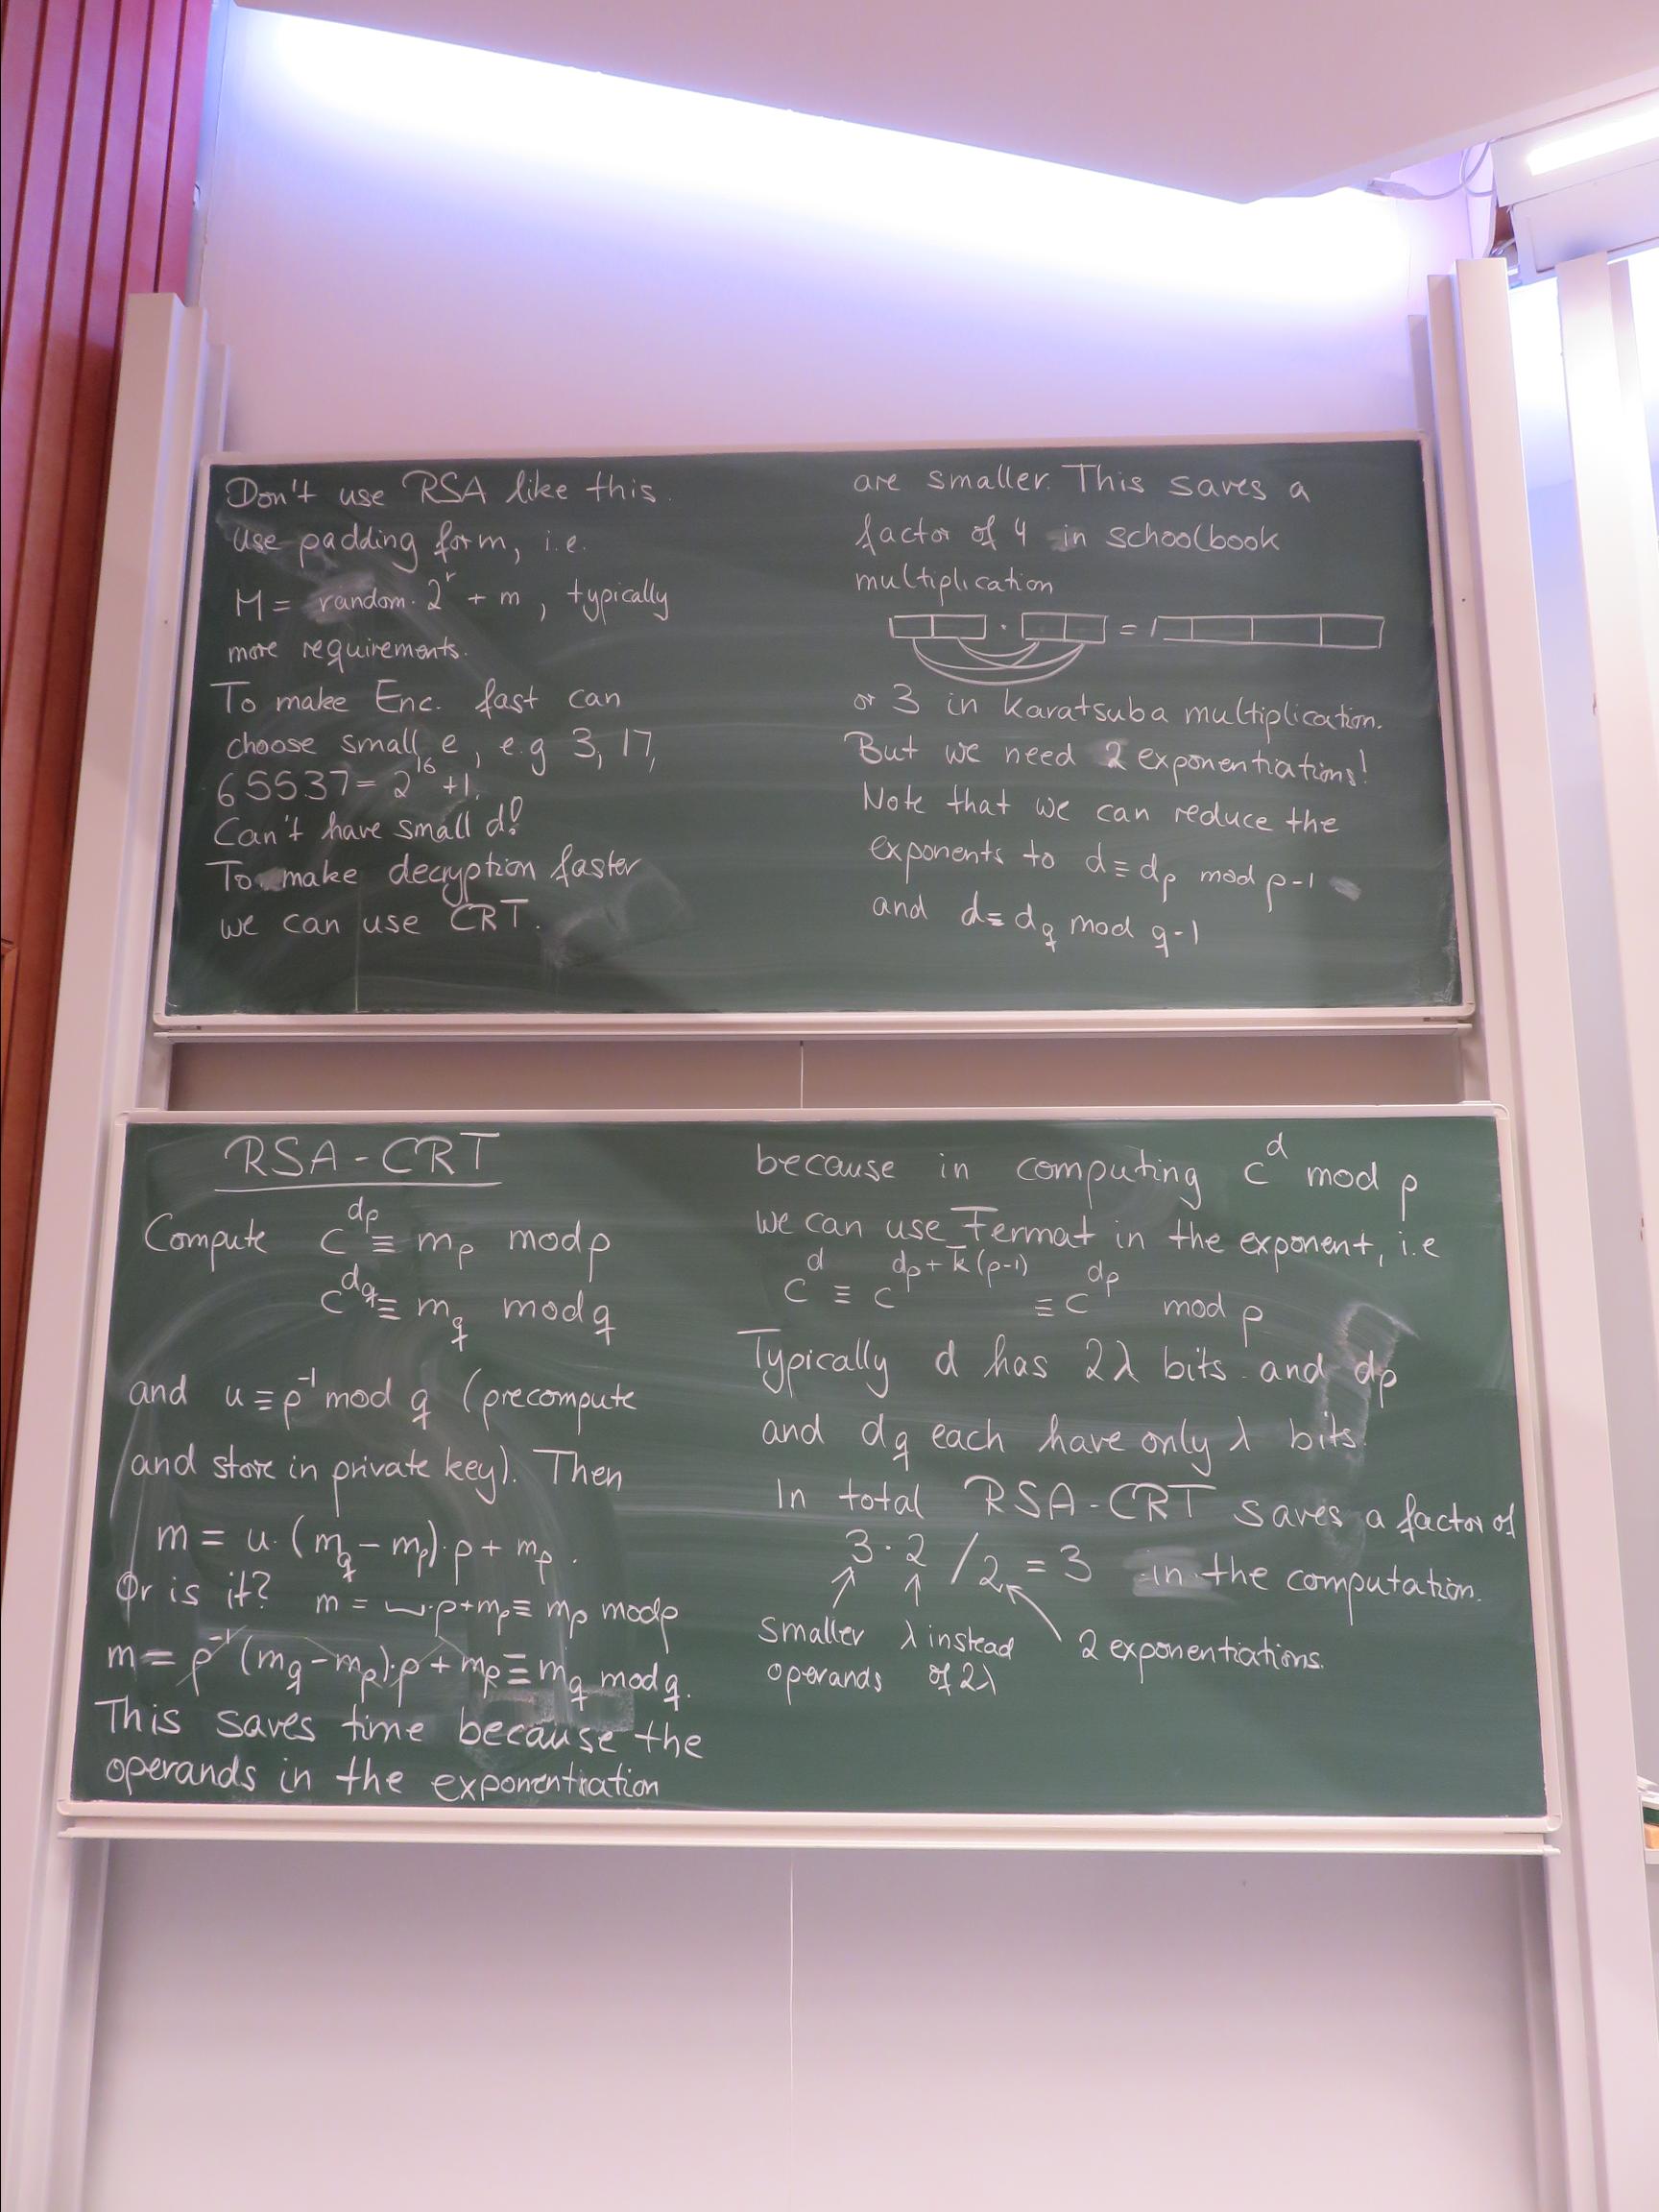 Don't use RSA like this.
Use padding for m, i.e.
M = random · 2^r + m , typically
more requirements.
To make Enc. fast can
choose small e, e.g 3, 17,
65537 = 2^16 +1.
Can't have small d!
To make decryption faster
we can use CRT.
are smaller. This saves a
factor of 4 in schoolbook
multiplication
· =
or 3 in karatsuba multiplication.
But we need 2 exponentiations!
Note that we can reduce the
exponents to d ≡ d_p mod p-1
and d ≡ d_q mod q-1
RSA-CRT
Compute c^{d_p} ≡ m_p mod p
c^{d_q} ≡ m_q mod q
and u ≡ p^{-1} mod q (precompute
and store in private key). Then
m = u · (m_q - m_p) · p + m_p .
Or is it? m = ⌴·p+m_p ≡ m_p mod p
m = p^{-1} (m_q - m_p)·p + m_p ≡ m_q mod q.
This saves time because the
operands in the exponentiation
because in computing c^d mod p
we can use Fermat in the exponent, i.e
c^d ≡ c^{d_p + k(p-1)} ≡ c^{d_p} mod p
Typically d has 2λ bits and d_p
and d_q each have only λ bits.
In total RSA-CRT saves a factor of
3 · 2 / 2 = 3 in the computation.
smaller λ instead 2 exponentiations.
operands of 2λ